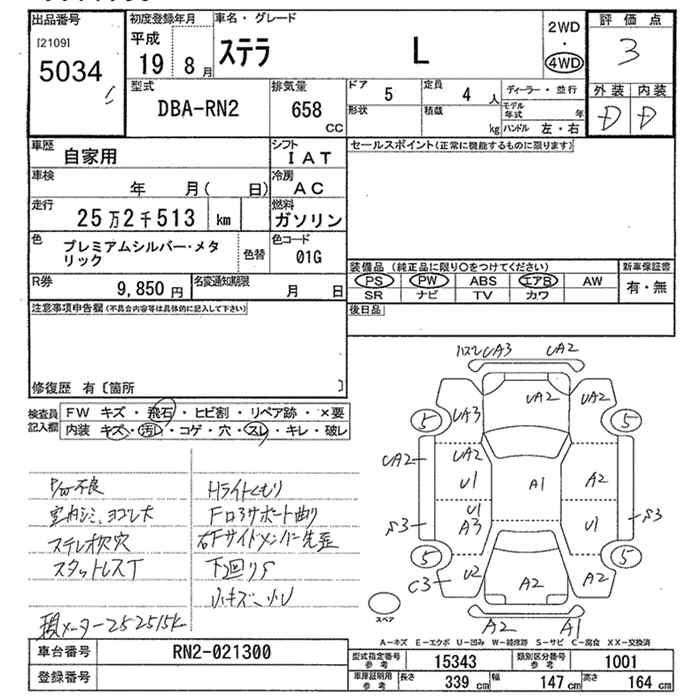 出品番号
[2109]
5034
初度登録年月
平成
19 8 月
車名・グレード
ステラ L
2WD
・
4WD
評価点
3
外装 内装
D D
型式
DBA-RN2
排気量
658
CC
ドア 5
定員 4 人
形状
積載 kg
ディーラー・並行
モデル年式 年
ハンドル 左・右
車歴
自家用
シフト
IAT
車検
年 月( 日)
冷房
AC
走行
25万2千513 km
燃料
ガソリン
色
プレミアムシルバー・メタ
リック
色替
色コード
01G
R券
9,850 円
名変通知期限
月 日
セールスポイント(正常に機能するものに限ります)
装備品 (純正品に限り〇をつけてください)
PS PW ABS エアB AW
SR ナビ TV カワ
新車保証書
有・無
後日品
注意事項申告欄(不具合内容等は具体的に記入して下さい)
修復歴 有〔箇所 〕
検査員
記入欄
FW キズ・飛石・ヒビ割・リペア跡・×要
内装 キズ・汚レ・コゲ・穴・スレ・キレ・破レ
P/W不良
室内シミ、ヨゴレ大
ステレオ欠穴
スタットレスT
現メーター252515K
Hライトくもり
Fロアサポート曲り
右Fサイドメンバー先歪
下回りS
小キズ、小U
UA3 UA2
5 UA3 UA2 UA2 5
UA2 UA2
U1 A1 A2
U1
A3 U1
S3 S3
5 U2 A2 A2 5
C3
A2 A1
スペア
A−キズ E−エクボ U−凹み W−補修跡 S−サビ C−腐食 XX−交換済
車台番号
RN2-021300
登録番号
型式指定番号
参考
15343
類別区分番号
参考
1001
車庫証明用
参考
長さ 339 cm
幅 147 cm
高さ 164 cm